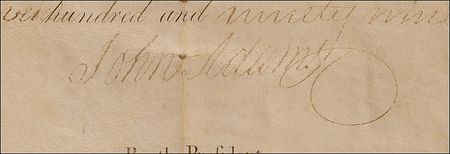 hundred and ninety nine
John Adams
By the President